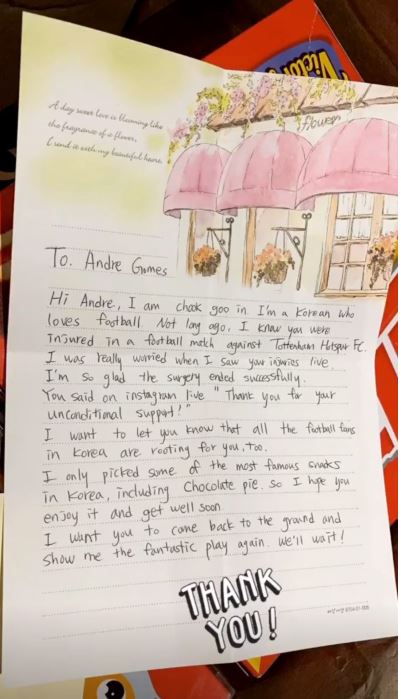 Victor
A day sweet love is blooming like
the fragrance of a flower,
I send it with my beautiful heart.
flower
To. Andre Gomes
Hi Andre, I am chook goo in. I'm a Korean who
loves football. Not long ago, I knew you were
injured in a football match against Tottenham Hotspur FC.
I was really worried when I saw your injuries live.
I'm so glad the surgery ended successfully.
You said on instagram live "Thank you for your
unconditional support!"
I want to let you know that all the football fans
in Korea are rooting for you, too.
I only picked some of the most famous snacks
in Korea, including Chocolate pie. So I hope you
enjoy it and get well soon
I want you to come back to the ground and
show me the fantastic play again. We'll wait!
THANK
YOU!